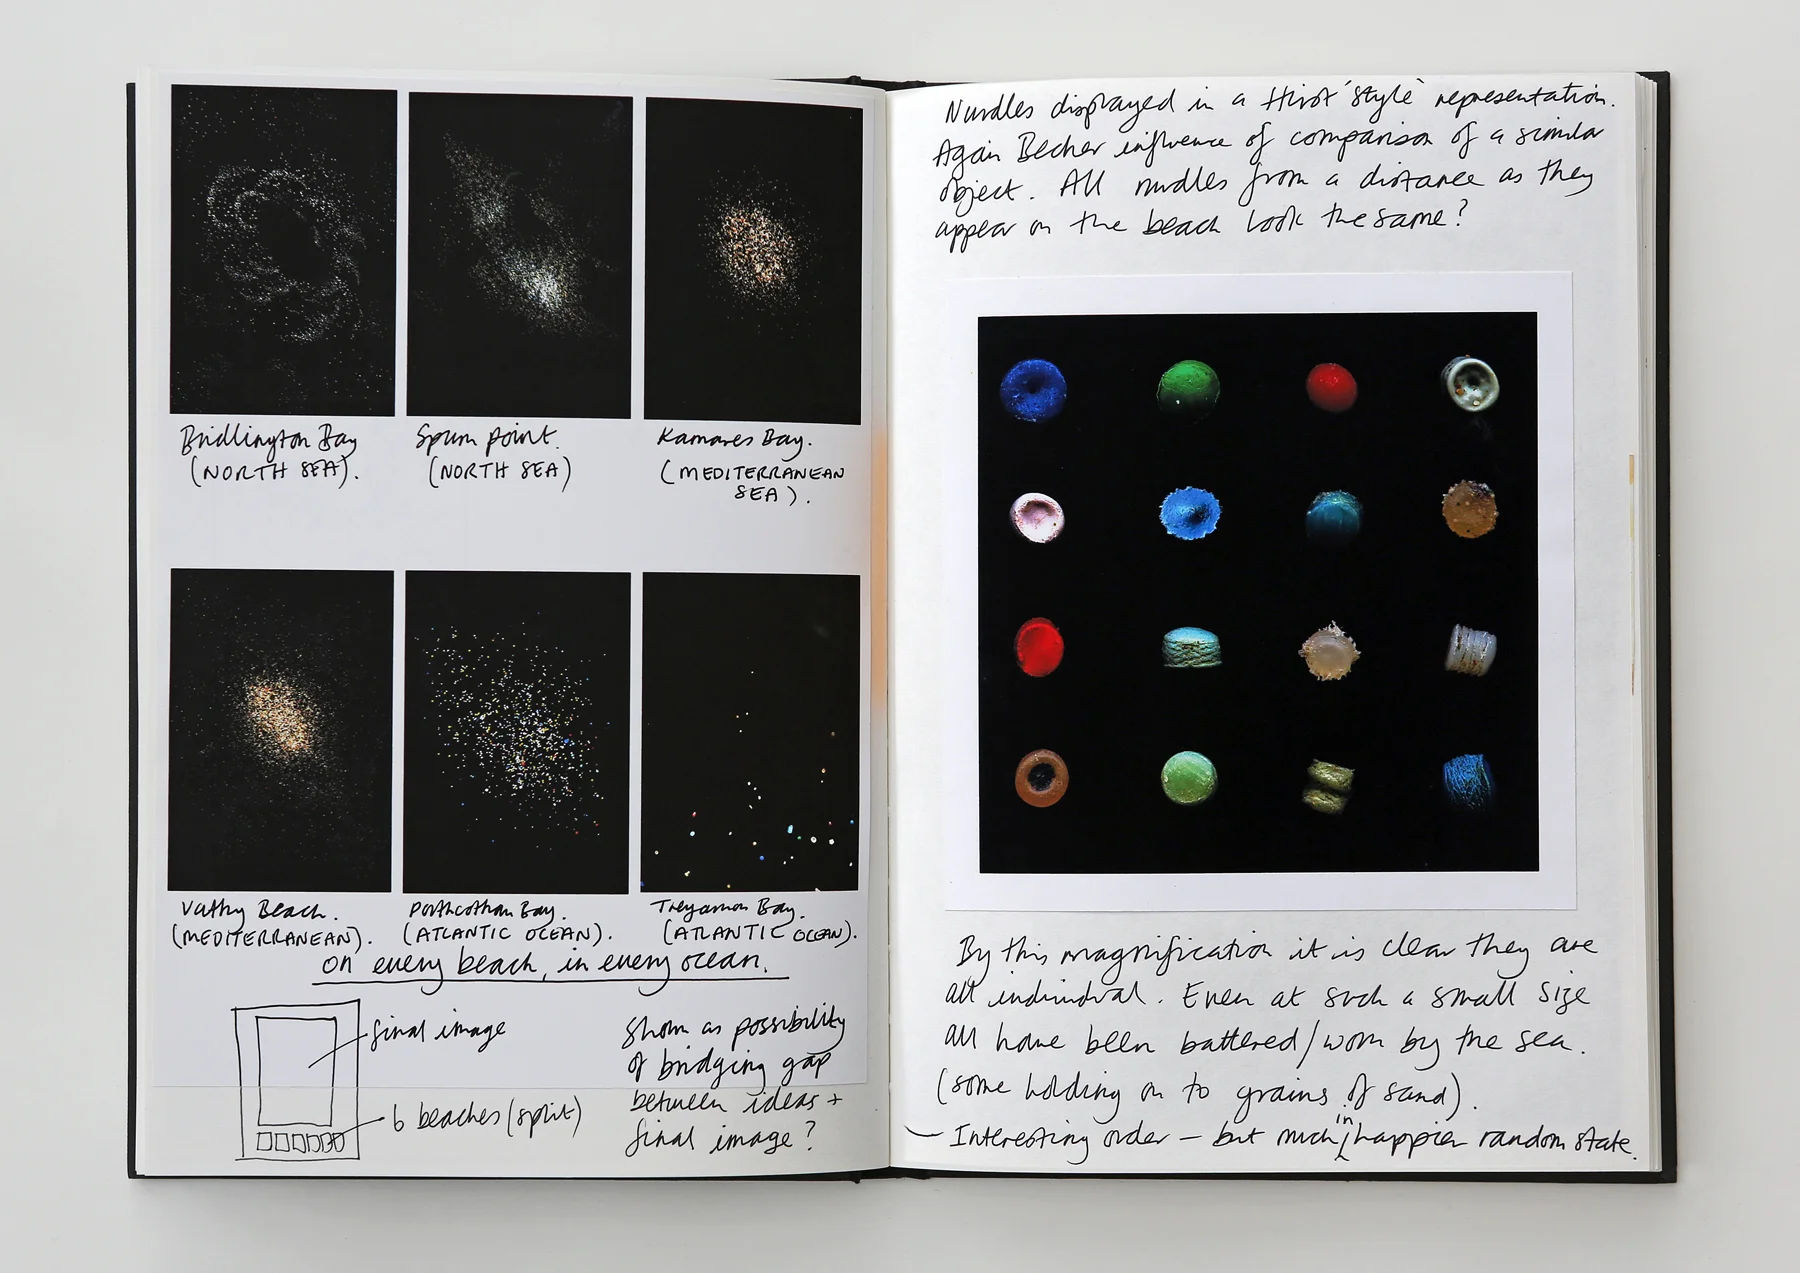 Bridlington Bay
(NORTH SEA).
Spurn point.
(NORTH SEA)
Kamares Bay.
(MEDITERRANEAN
SEA).
Vathy Beach.
(MEDITERRANEAN).
Porthcothan Bay.
(ATLANTIC OCEAN).
Treyarnon Bay.
(ATLANTIC OCEAN).
on every beach, in every ocean.
final image
6 beaches (split)
Shown as possibility
of bridging gap
between ideas +
final image?
Nurdles displayed in a Hirst 'style' representation.
Again Becher influence of comparison of a similar
object. All nurdles from a distance as they
appear on the beach look the same?
By this magnification it is clear they are
all individual. Even at such a small size
all have been battered/worn by the sea.
(some holding on to grains of sand).
— Interesting order – but much in happier random state.